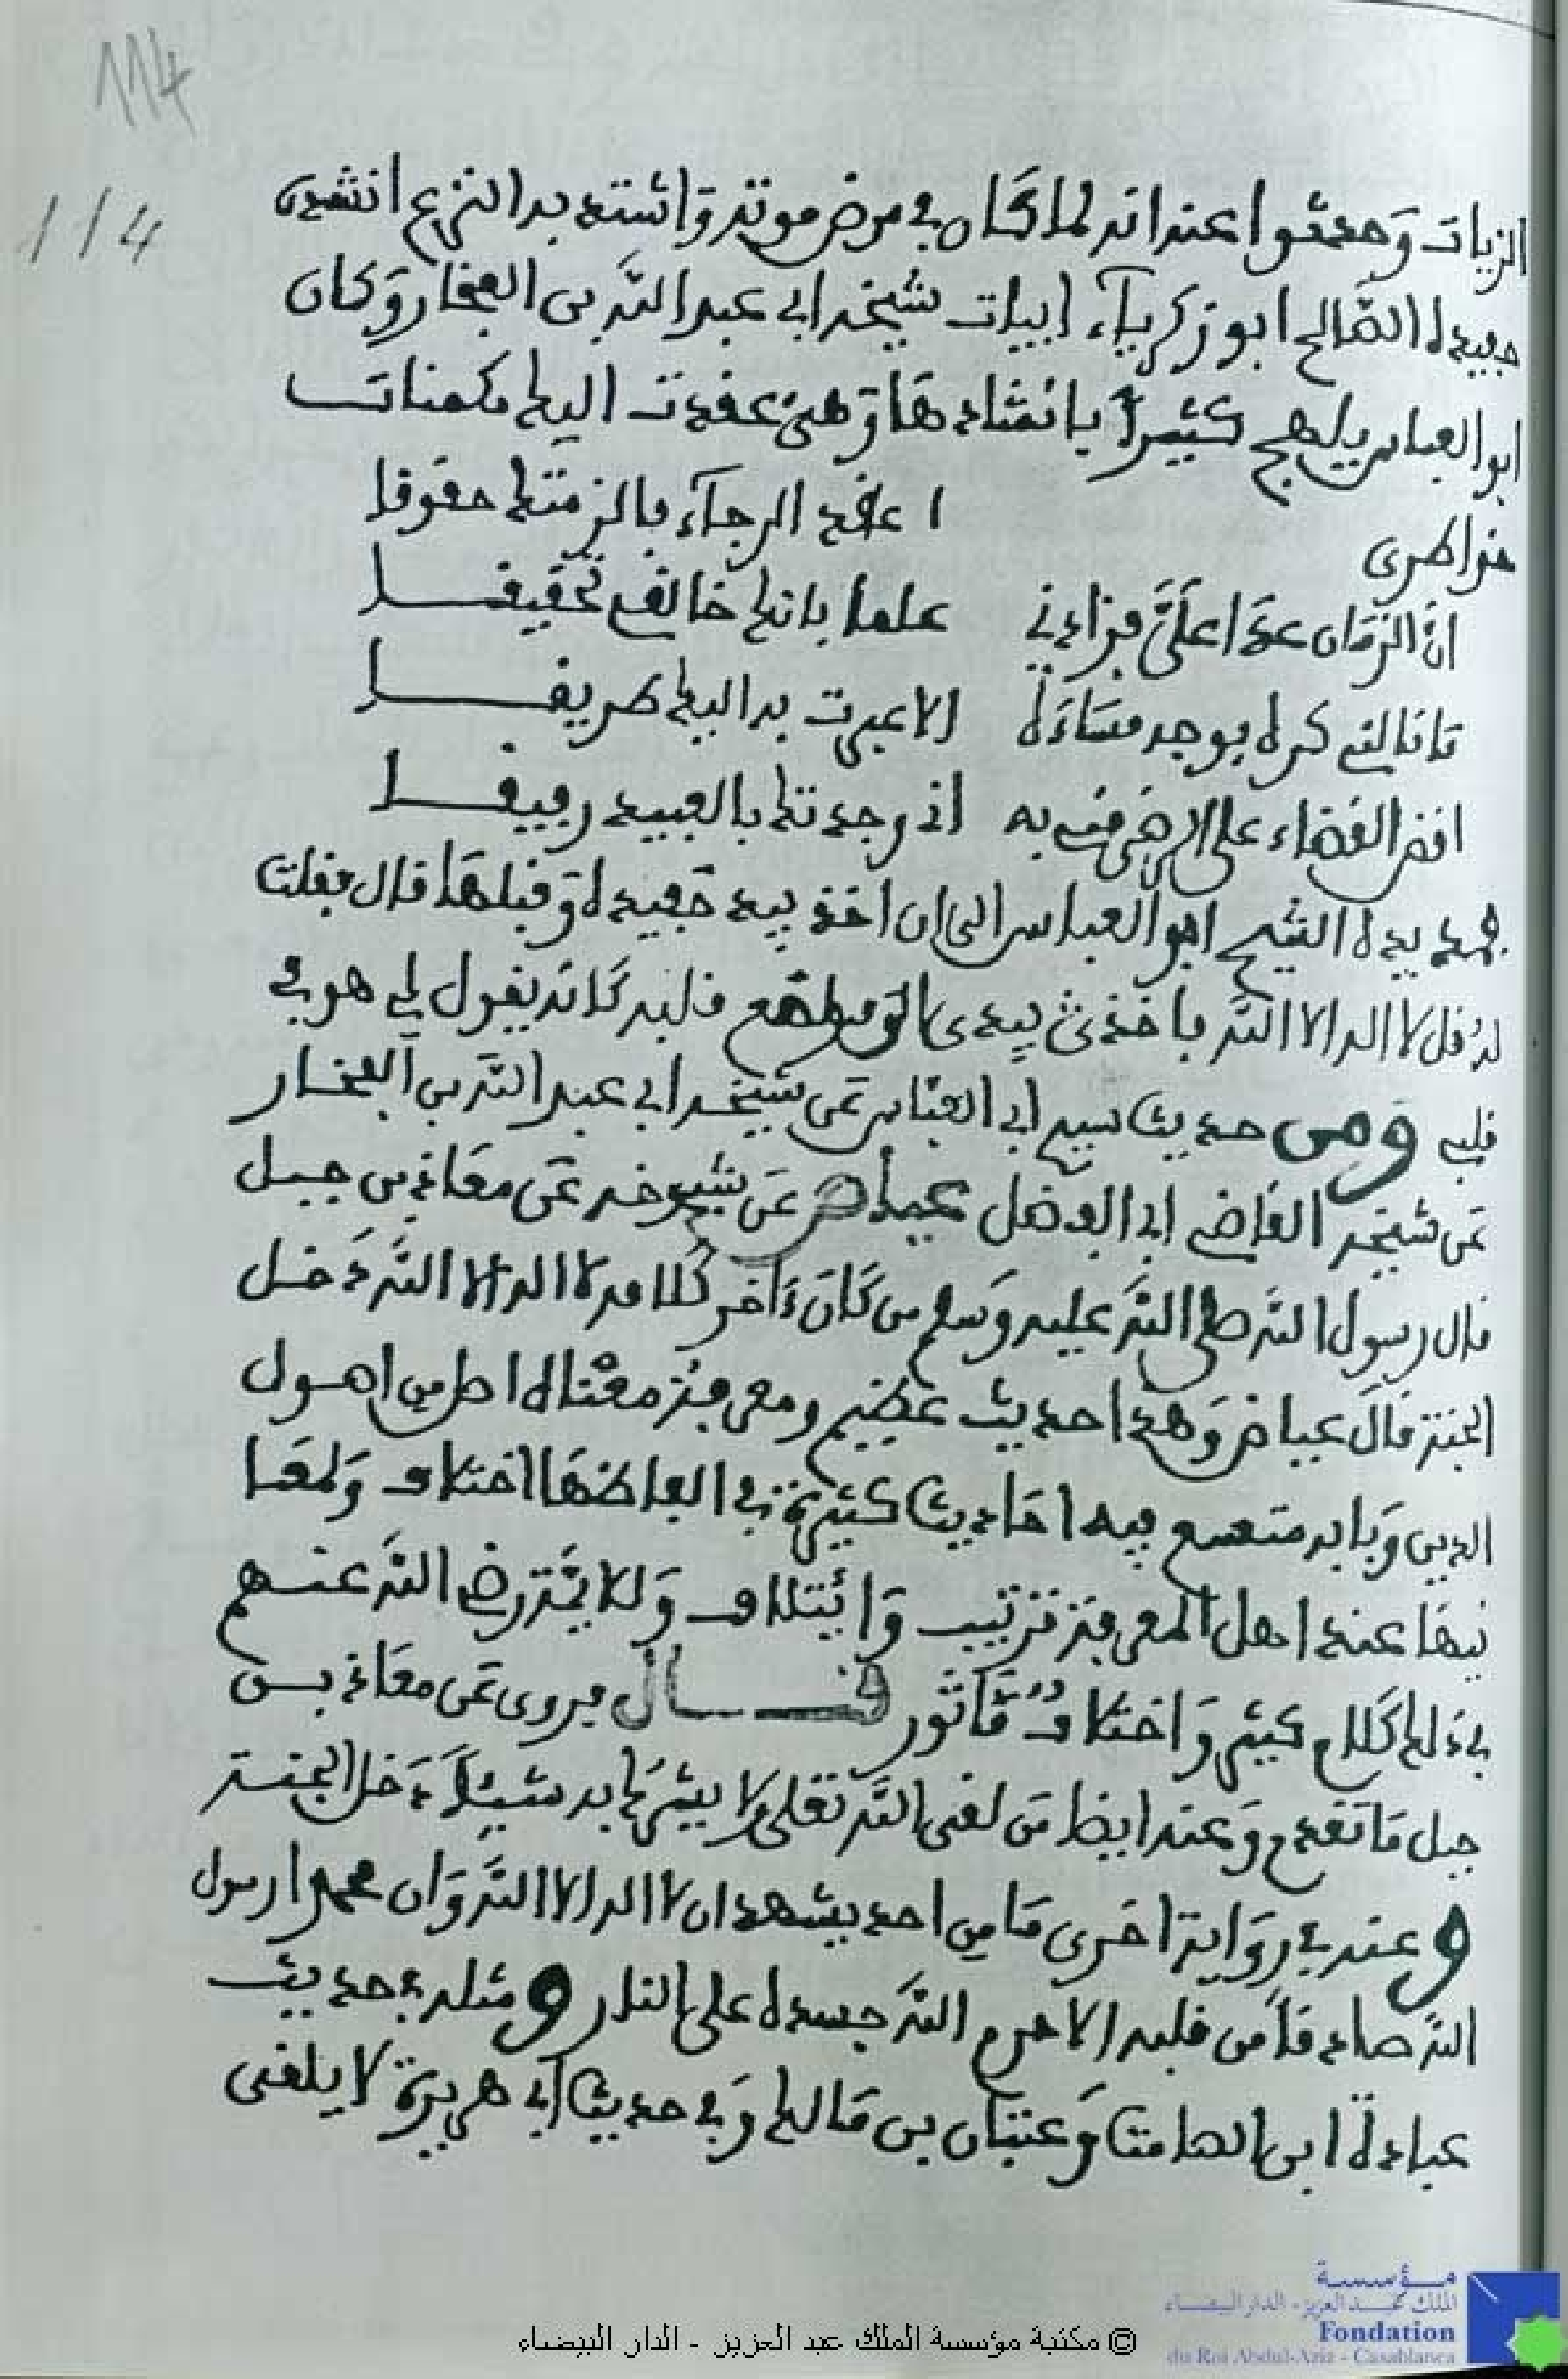 114
114
الزيات وحدثوا عنه انه لما كان في مرض موته واشتد به النزع انشدى
حفيده الصالح ابو زكرياء ابيات شيخه ابي عبد الله بن الفخار وكان
ابو العباس يلهج كثيرا بانشادها وهي عقدت اليك مكمنات
خواطرى ا عقد الرجاء فالزمتك حقوقا
ان الزمان عدا علي فزادني علما بانك خالقي تحقيقا
ما نالني كرب بوجه مساءة الا عبرت به اليك طريقا
افض القضاء على الرضى مني به اني وجدتك بالعبيد رفيقا
فمد يده الشيخ ابو العباس الى ان اخذ بيد حفيده وقبلها قال فقلت
له قل لا اله الا الله فاخذني بيدي الى موضع قلبه كانه يقول لي هو في
قلبي ومن حديث سيدي ابي العباس عن شيخه ابي عبد الله بن الفخار
عن شيخه القاضي ابي الفضل عياض عن شيوخه عن معاذ بن جبل
قال رسول الله صلى الله عليه وسلم من كان ءاخر كلامه لا اله الا الله دخل
الجنة قال عياض وهذا حديث عظيم ومعرفة معناه اصل من اصول
الدين وبابه متسع فيه احاديث كثيرة في الفاظها اختلاف ولمعا
نيها عند اهل المعرفة ترتيب وائتلاف وللايمة رضي الله عنهم
في ذلك كلام كثير واختلاف ماثور قال فروى عن معاذ بن
جبل ما تقدم وعنه ايضا من لقي الله تعلى لا يشرك به شيئا دخل الجنة
وعنه في رواية اخرى ما من احد يشهد ان لا اله الا الله وان محمدا رسول
الله صادقا من قلبه الا حرم الله جسده على النار ومثله في حديث
عبادة ابن الصامت وعتبان بن مالك وفي حديث ابي هريرة لا يلقى
مؤسسة
الملك عبد العزيز - الدار البيضاء
Fondation
du Roi Abdul-Aziz - Casablanca
© مكتبة مؤسسة الملك عبد العزيز - الدار البيضاء